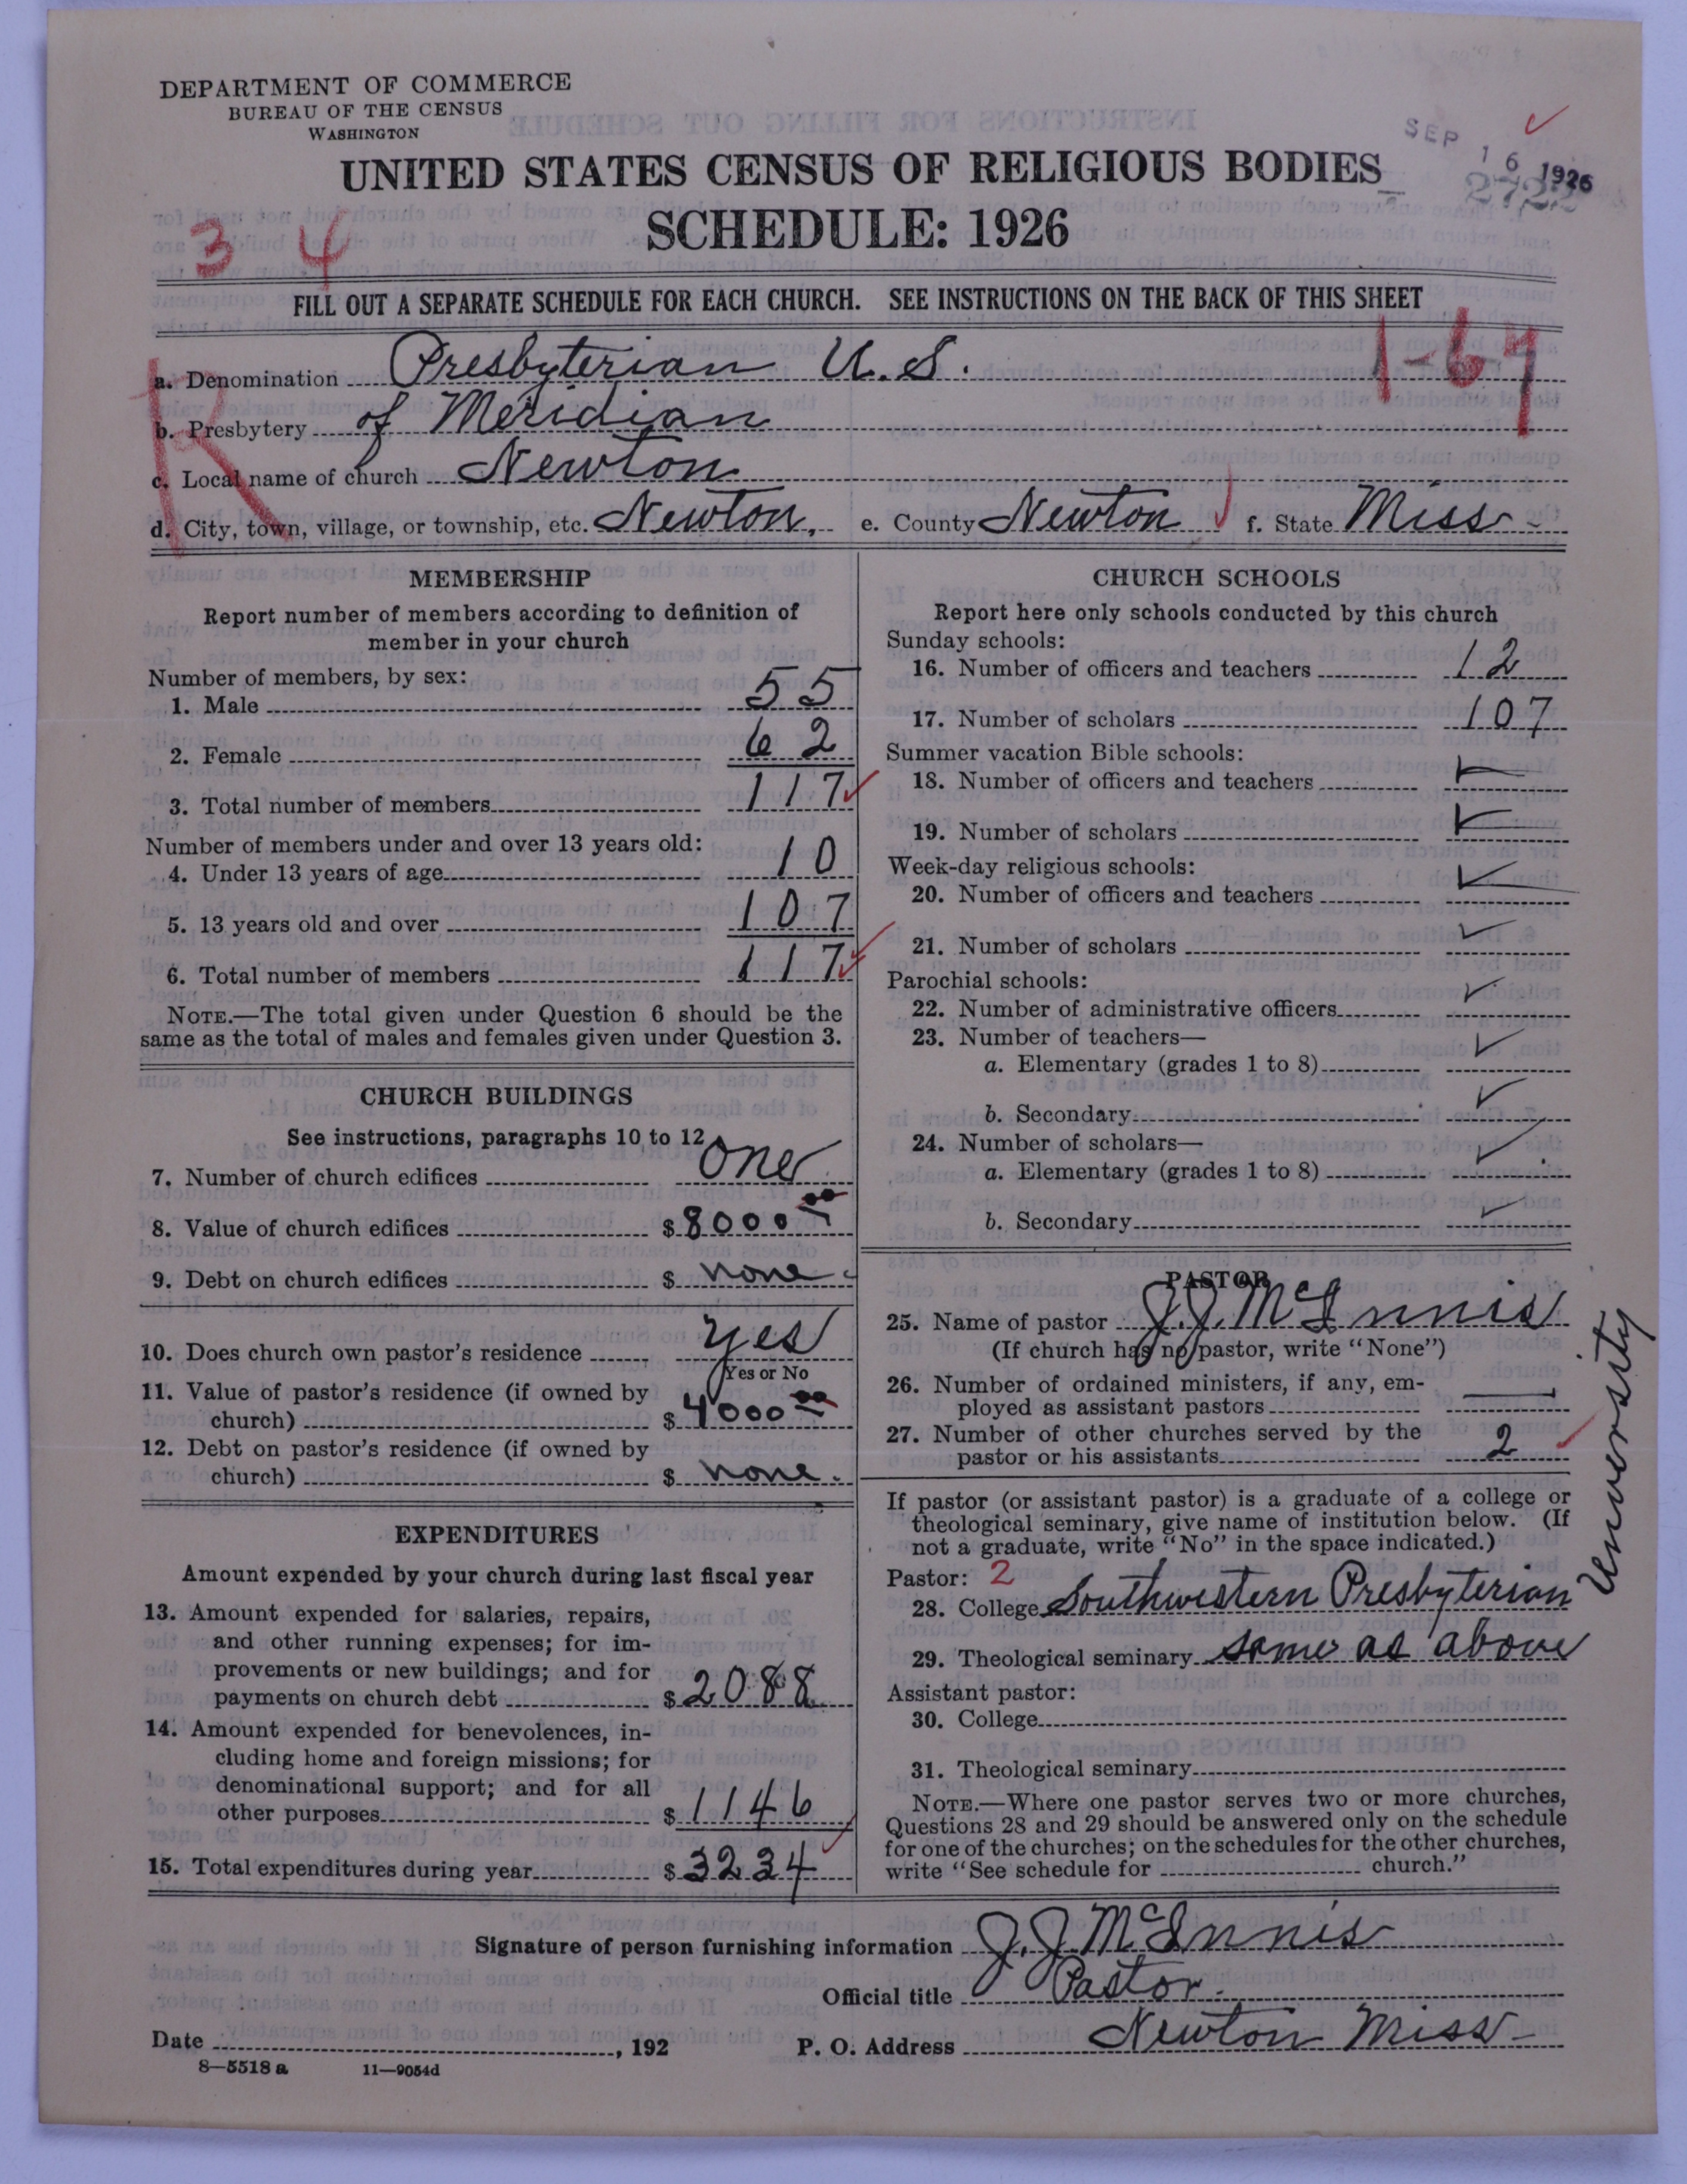 DEPARTMENT OF COMMERCE
BUREAU OF THE CENSUS
WASHINGTON
SEP 16 1926
UNITED STATES CENSUS OF RELIGIOUS BODIES
SCHEDULE: 1926
3 4
FILL OUT A SEPARATE SCHEDULE FOR EACH CHURCH. SEE INSTRUCTIONS ON THE BACK OF THIS SHEET
1-67
R
a. Denomination Presbyterian U.S.
b. Presbytery of Meridian
c. Local name of church Newton
d. City, town, village, or township, etc. Newton, e. County Newton f. State Miss
MEMBERSHIP
Report number of members according to definition of
member in your church
Number of members, by sex:
1. Male 55
2. Female 62
3. Total number of members 117
Number of members under and over 13 years old:
4. Under 13 years of age 10
5. 13 years old and over 107
6. Total number of members 117
NOTE.—The total given under Question 6 should be the
same as the total of males and females given under Question 3.
CHURCH BUILDINGS
See instructions, paragraphs 10 to 12
7. Number of church edifices one
8. Value of church edifices $ 8000 00
9. Debt on church edifices $ none
10. Does church own pastor's residence yes
Yes or No
11. Value of pastor's residence (if owned by
church) $ 4000 00
12. Debt on pastor's residence (if owned by
church) $ none.
EXPENDITURES
Amount expended by your church during last fiscal year
13. Amount expended for salaries, repairs,
and other running expenses; for im-
provements or new buildings; and for
payments on church debt $ 2088
14. Amount expended for benevolences, in-
cluding home and foreign missions; for
denominational support; and for all
other purposes $ 1146
15. Total expenditures during year $ 3234
CHURCH SCHOOLS
Report here only schools conducted by this church
Sunday schools:
16. Number of officers and teachers 12
17. Number of scholars 107
Summer vacation Bible schools:
18. Number of officers and teachers
19. Number of scholars
Week-day religious schools:
20. Number of officers and teachers
21. Number of scholars
Parochial schools:
22. Number of administrative officers
23. Number of teachers—
a. Elementary (grades 1 to 8)
b. Secondary
24. Number of scholars—
a. Elementary (grades 1 to 8)
b. Secondary
PASTOR
25. Name of pastor J.J. McInnis
(If church has no pastor, write "None")
26. Number of ordained ministers, if any, em-
ployed as assistant pastors
27. Number of other churches served by the
pastor or his assistants 2
If pastor (or assistant pastor) is a graduate of a college or
theological seminary, give name of institution below. (If
not a graduate, write "No" in the space indicated.)
Pastor: 2
28. College Southwestern Presbyterian University
29. Theological seminary same as above
Assistant pastor:
30. College
31. Theological seminary
NOTE.—Where one pastor serves two or more churches,
Questions 28 and 29 should be answered only on the schedule
for one of the churches; on the schedules for the other churches,
write "See schedule for church."
Signature of person furnishing information J. J. McInnis
Official title Pastor.
Date , 192 P. O. Address Newton Miss
8—5518 a 11—9054d